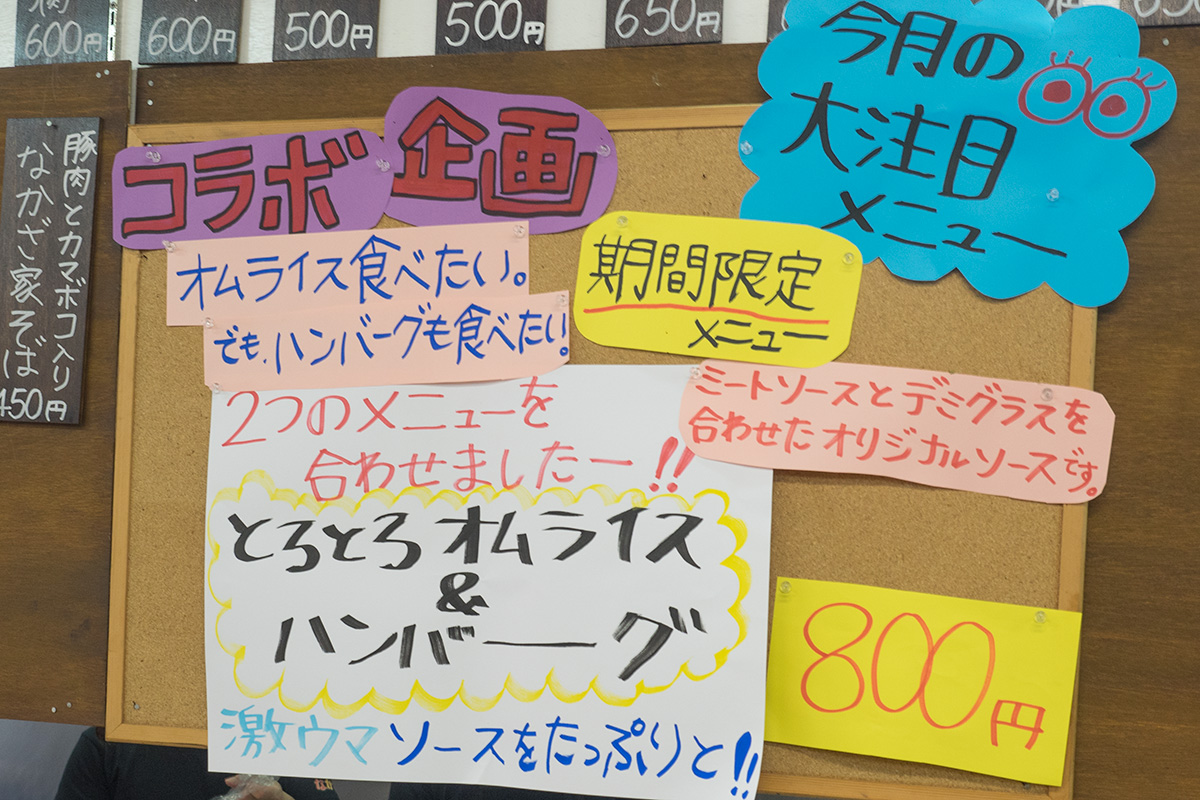 600円
600円
500円
500円
650円
今月の
大注目
メニュー
コラボ
企画
豚肉とカマボコ入り
なかざ家そば
450円
オムライス食べたい。
でも、ハンバーグも食べたい。
期間限定
メニュー
2つのメニューを
合わせましたー!!
ミートソースとデミグラスを
合わせたオリジナルソースです。
とろとろオムライス
&
ハンバーグ
激ウマソースをたっぷりと!!
800円